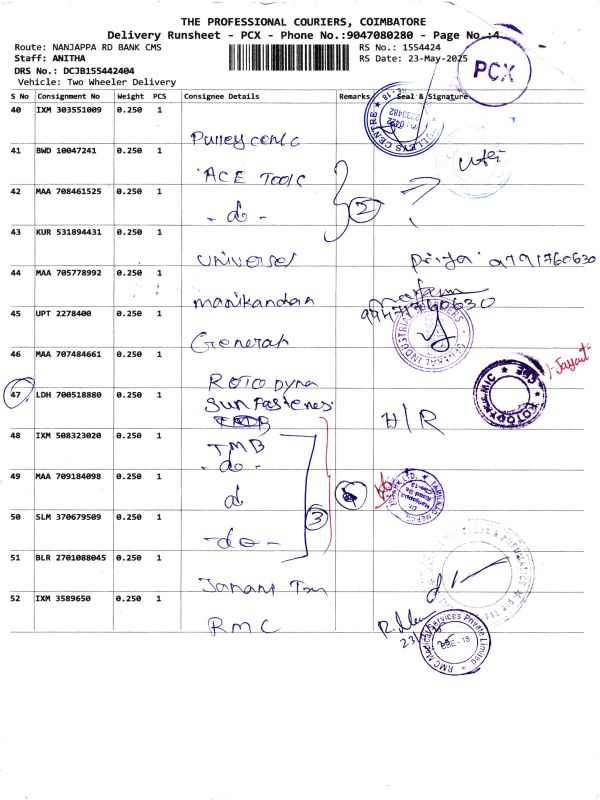 THE PROFESSIONAL COURIERS, COIMBATORE
Delivery Runsheet - PCX - Phone No.:9047080280 - Page No.:4
Route: NANJAPPA RD BANK CMS
RS No.: 1554424
Staff: ANITHA
RS Date: 23-May-2025
DRS No.: DCJB155442404
Vehicle: Two Wheeler Delivery
PCX
S No Consignment No Weight PCS Consignee Details Remarks Seal & Signature
40 IXM 303551009 0.250 1
Pulleycentc
41 BWD 10047241 0.250 1
ACE Tools
42 MAA 708461525 0.250 1
- do -
2
43 KUR 531894431 0.250 1
Universal
Priya
44 MAA 705778992 0.250 1
manikandan
45 UPT 2278400 0.250 1
General
46 MAA 707484661 0.250 1
ROTO Dyna
47 LDH 700518880 0.250 1
Sun Fasteners
H/R
48 IXM 508323020 0.250 1
TMB
- do -
49 MAA 709184098 0.250 1
d
50 SLM 370679509 0.250 1
- do -
3
51 BLR 2701088045 0.250 1
Janani
52 IXM 3589650 0.250 1
RMC
RMC Medical Services Private Limited
CBE - 18